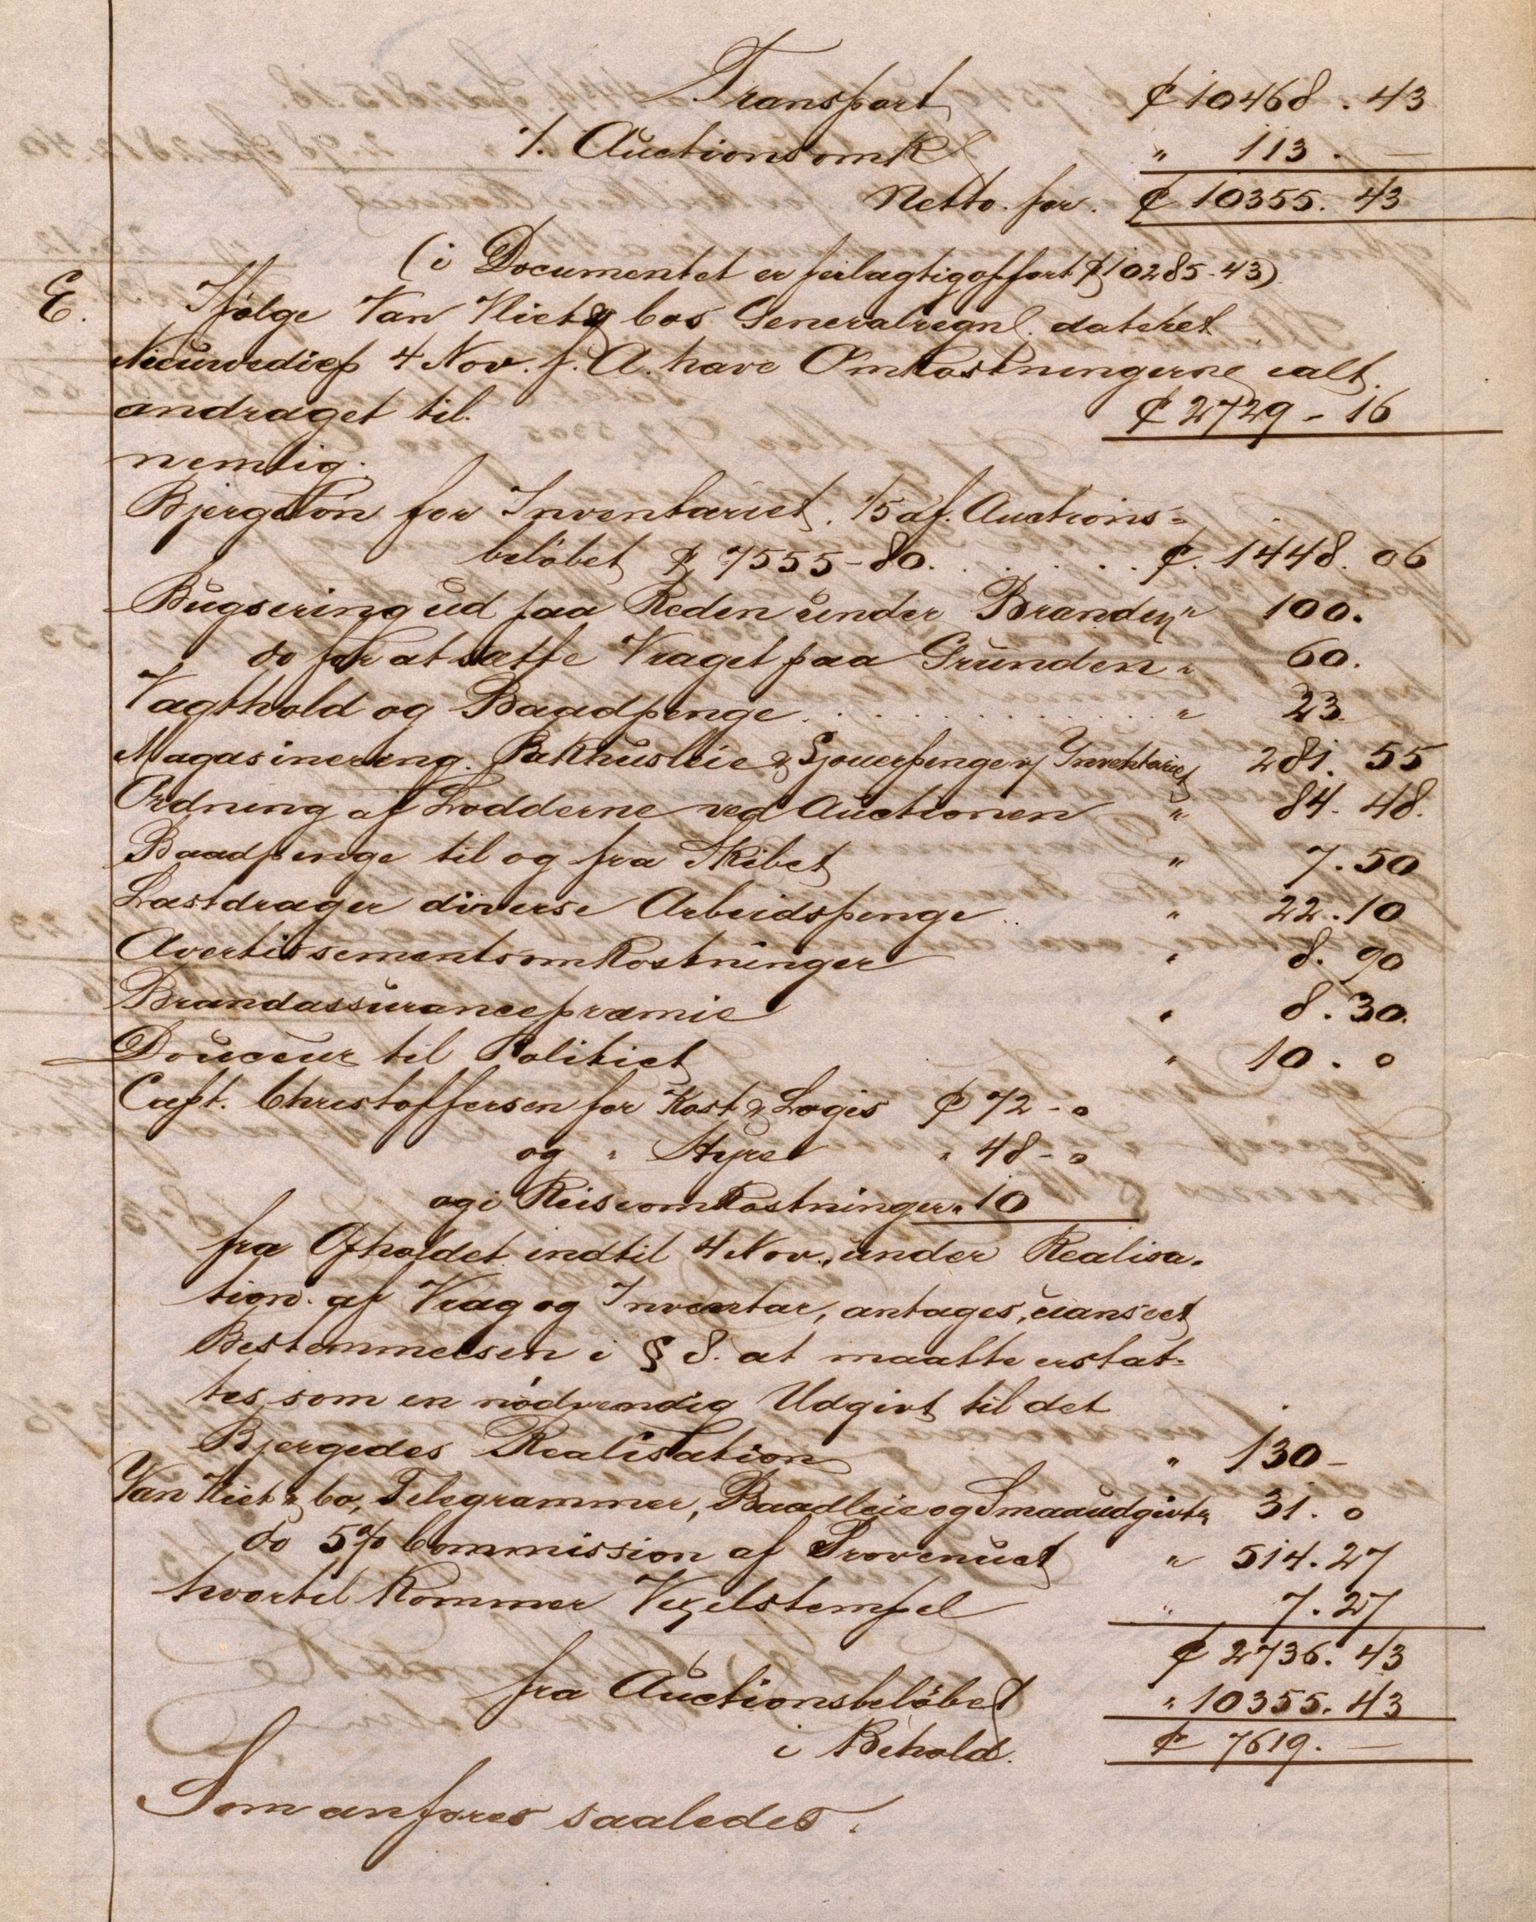 Transport ₡ 10468. 43
÷. Auctionsomk " 113. —
Netto. for. ₡ 10355. 43
(i Documentet er feilagtig opført ₡ 10285-43)
E. Ifølge Van Vliet & Cos Generalregn. dateret
Nieuwediep 4 Nov. f. A. have Omkostningerne ialt.
andraget til. ₡ 2729 - 16
nemlig.
Bjergeløn for Inventariet. 1/5 af. Auctions=
beløbet ₡ 7555-80. . . . . . . ₡. 1448. 06
Bugsering ud paa Reden under Branden " 100.
do for at sætte Vraget paa Grunden " 60.
Vagthold og Baadpenge . . . . . . . . . " 23.
Magasinering. Pakhusleie & Sjouerpenge v/ Inventariet 281. 55
Ordning af Lodderne ved Auctionen " 84. 48.
Baadpenge til og fra Skibet " 7. 50
Lastdrager diverse Arbeidspenge .. " 22. 10
Avertissementsomkostninger " 8. 90
Brandassurancepræmie " 8. 30.
Douceur til Politiet " 10. 0
Capt. Christoffersen for Kost & Logis ₡ 72-0
og " Hyre " 48-0
og i Reiseomkostninger " 10
fra Opholdet indtil 4 Nov., under Realisa-
tion. af Vrag og Inventar, antages, uanseet
Bestemmelsen i § 8. at maatte erstat=
tes som en nödvendig Udgivt til det
Bjergedes Realisation " 130 -
Van Vliet & Co, Telegrammer, Baadleie og Smaaudgivter 31. 0
do 5% Commission af Provenuet " 514. 27
hvortil kommer Vexelstempel " 7. 27
₡ 2736. 43
fra Auctionsbeløbet " 10355. 43
i Behold. ₡ 7619. —
Som anføres saaledes.